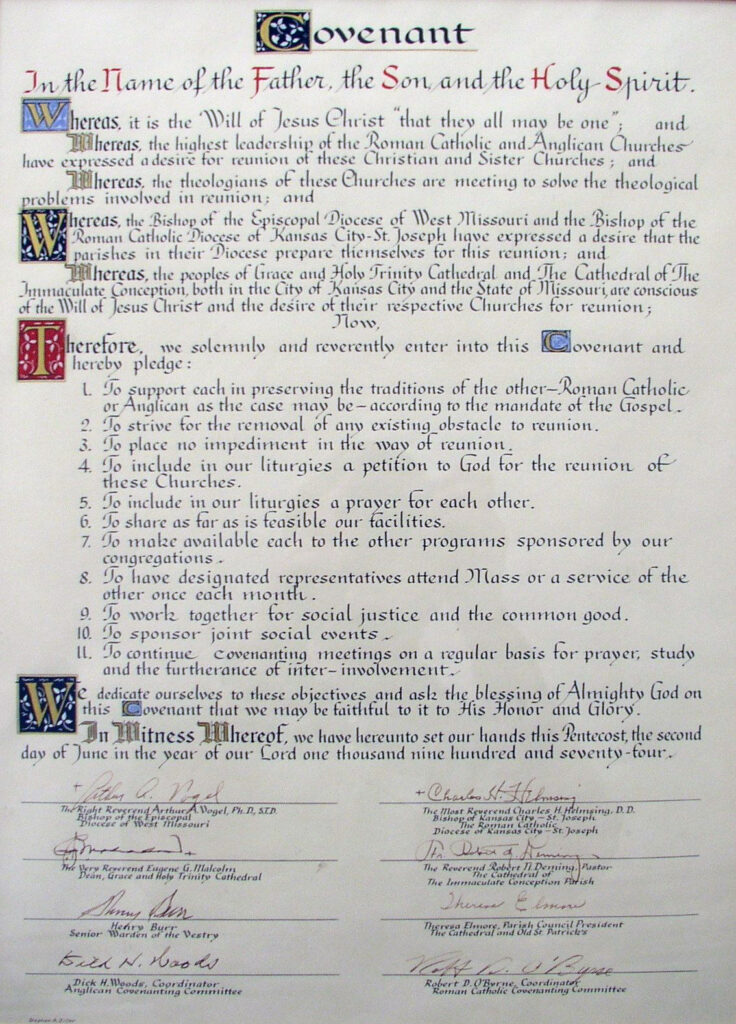 Covenant
In the Name of the Father, the Son, and the Holy Spirit.
Whereas, it is the Will of Jesus Christ "that they all may be one"; and
Whereas, the highest leadership of the Roman Catholic and Anglican Churches
have expressed a desire for reunion of these Christian and Sister Churches; and
Whereas, the theologians of these Churches are meeting to solve the theological
problems involved in reunion; and
Whereas, the Bishop of the Episcopal Diocese of West Missouri and the Bishop of the
Roman Catholic Diocese of Kansas City-St. Joseph have expressed a desire that the
parishes in their Diocese prepare themselves for this reunion; and
Whereas, the peoples of Grace and Holy Trinity Cathedral and The Cathedral of The
Immaculate Conception, both in the City of Kansas City and the State of Missouri, are conscious
of the Will of Jesus Christ and the desire of their respective Churches for reunion;
Now,
Therefore, we solemnly and reverently enter into this Covenant and
hereby pledge:
1. To support each in preserving the traditions of the other—Roman Catholic
or Anglican as the case may be—according to the mandate of the Gospel.
2. To strive for the removal of any existing obstacle to reunion.
3. To place no impediment in the way of reunion.
4. To include in our liturgies a petition to God for the reunion of
these Churches.
5. To include in our liturgies a prayer for each other.
6. To share as far as is feasible our facilities.
7. To make available each to the other programs sponsored by our
congregations.
8. To have designated representatives attend Mass or a service of the
other once each month.
9. To work together for social justice and the common good.
10. To sponsor joint social events.
11. To continue covenanting meetings on a regular basis for prayer, study
and the furtherance of inter-involvement.
We dedicate ourselves to these objectives and ask the blessing of Almighty God on
this Covenant that we may be faithful to it to His Honor and Glory.
In Witness Whereof, we have hereunto set our hands this Pentecost, the second
day of June in the year of our Lord one thousand nine hundred and seventy-four.
+ Arthur A. Vogel
The Right Reverend Arthur A. Vogel, Ph.D., S.T.D.
Bishop of the Episcopal
Diocese of West Missouri
+ Charles H. Helmsing
The Most Reverend Charles H. Helmsing, D.D.
Bishop of Kansas City—St. Joseph
The Roman Catholic
Diocese of Kansas City—St. Joseph
The Very Reverend Eugene G. Malcolm
Dean, Grace and Holy Trinity Cathedral
Fr. Robert N. Deming
The Reverend Robert N. Deming, Pastor
The Cathedral of
The Immaculate Conception Parish
Henry Burr
Henry Burr
Senior Warden of the Vestry
Theresa Elmore
Theresa Elmore, Parish Council President
The Cathedral and Old St. Patrick's
Dick H. Woods
Dick H. Woods, Coordinator
Anglican Covenanting Committee
Robt D. O'Byrne
Robert D. O'Byrne, Coordinator
Roman Catholic Covenanting Committee